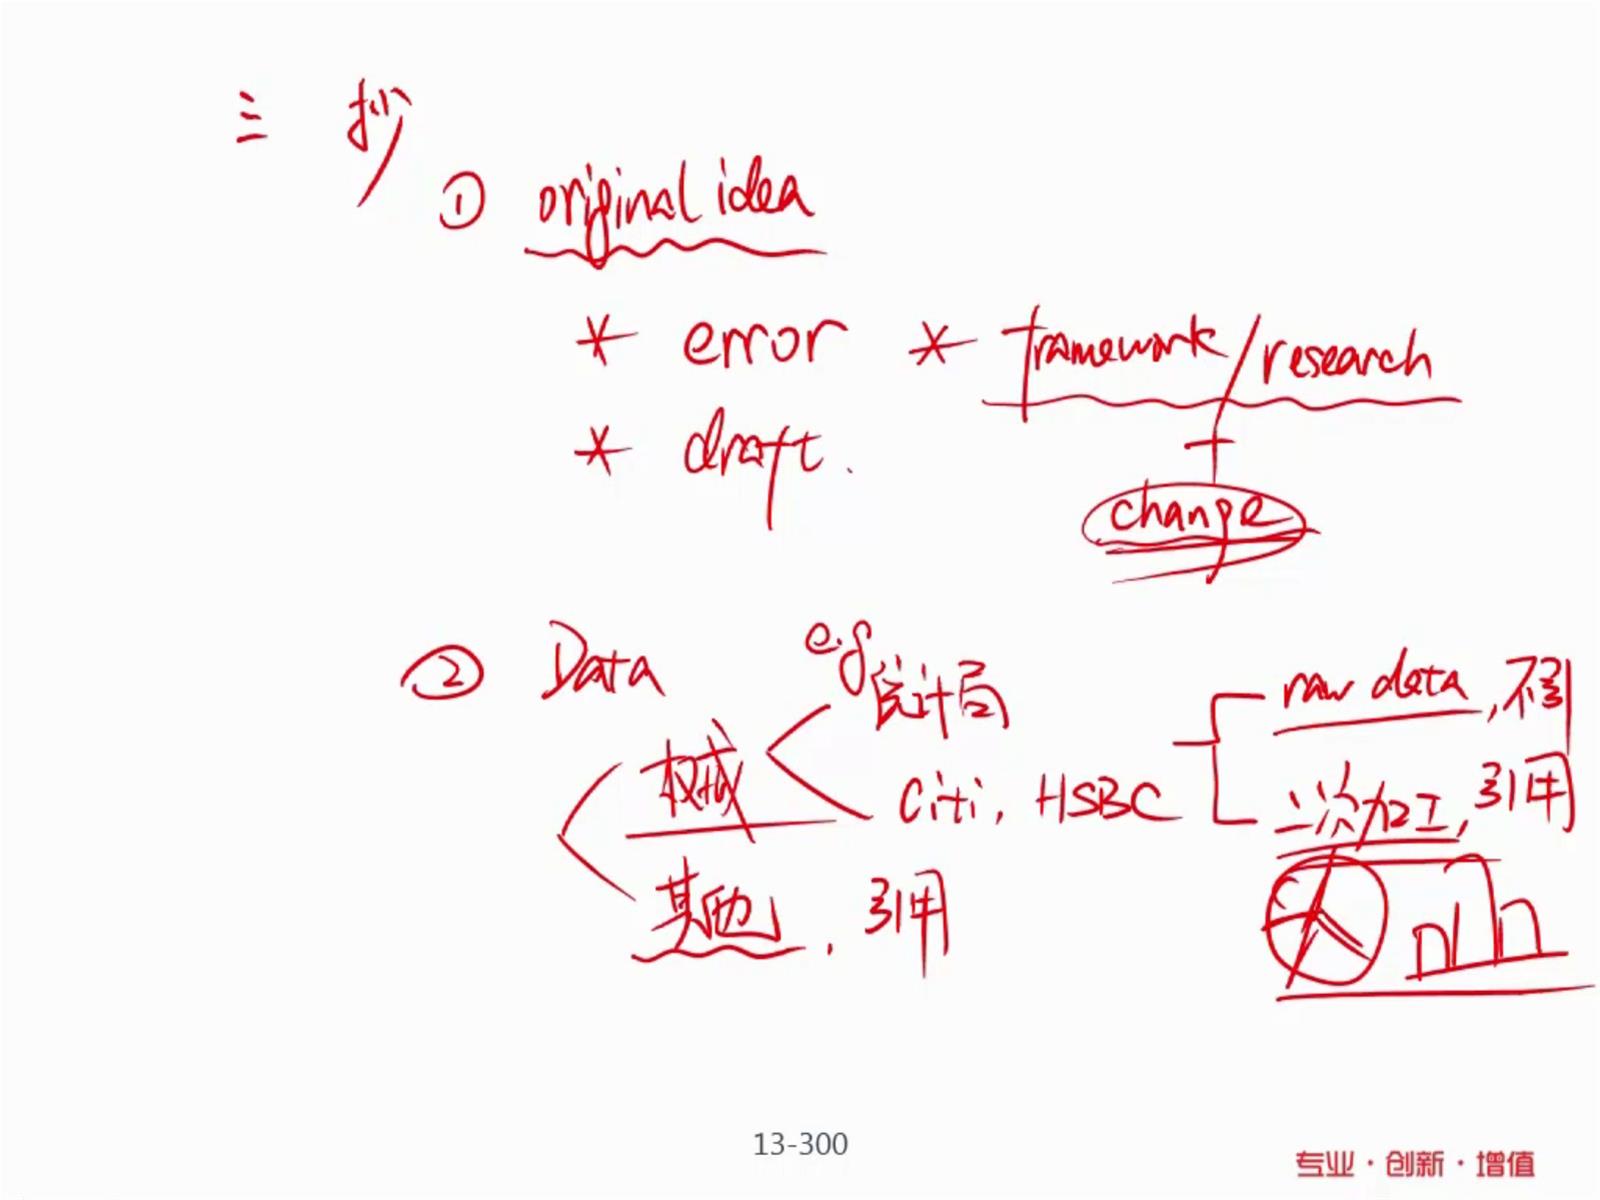 三 抄
① original idea
* error * framework/research
* draft.
change
② Data e.g
统计局 raw data, 不引
权威
Citi, HSBC 二次加工, 引用
其他, 引用
13-300
专业·创新·增值